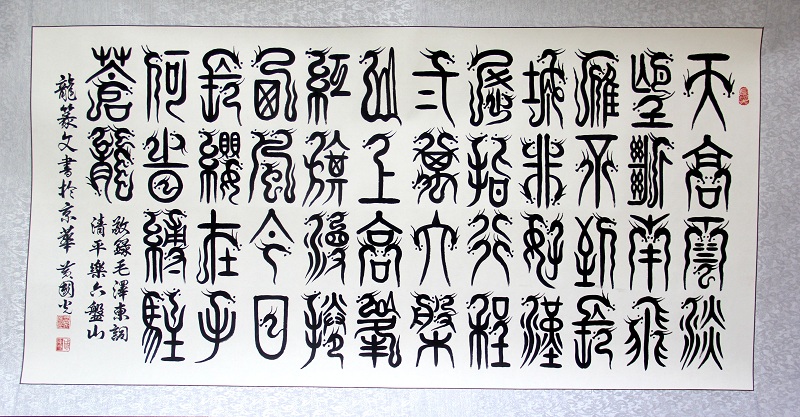 天高雲淡
望斷南飛
雁不到長
城非好漢
屈指行程
弍萬六盤
山上高峰
紅旗漫捲
西風今日
長纓在手
何旹縛駐
蒼龍
敬錄毛澤東詞
清平樂六盤山
龍篆文書於京華 黃國光